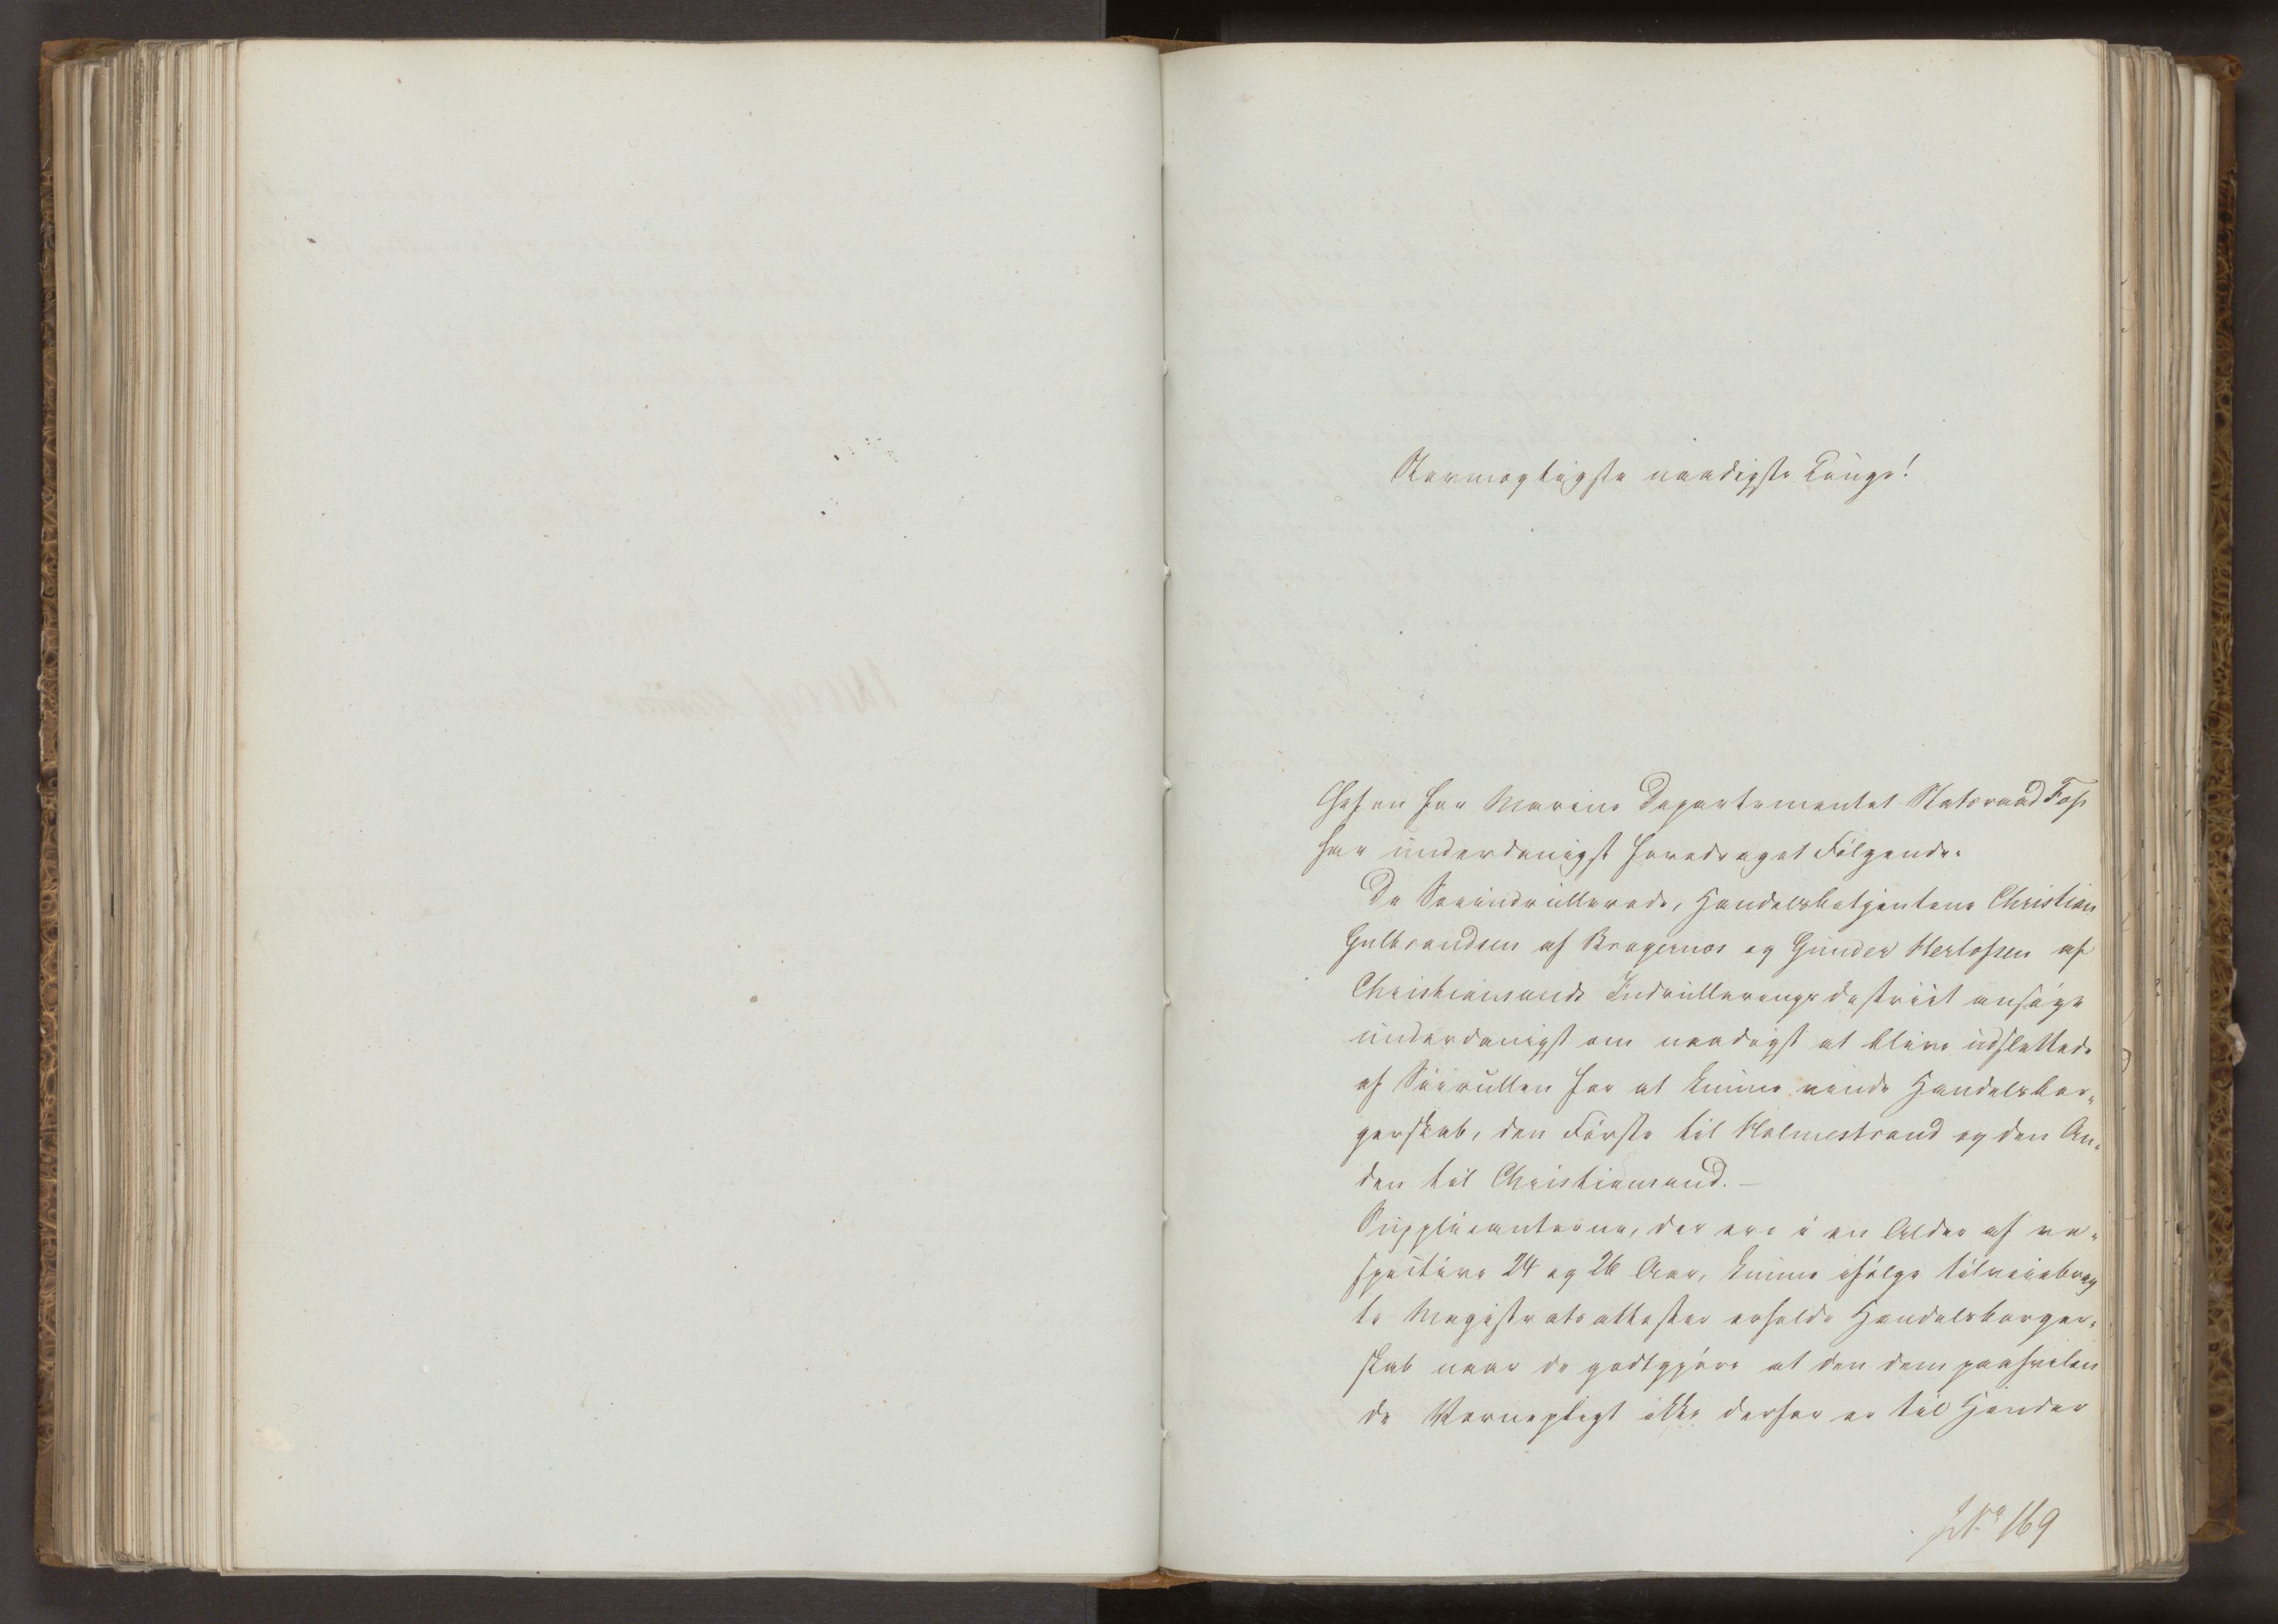 Stormægtigste naadigste Konge!
Chefen for Marine Departementet Statsraad Foss
har underdanigst foredraget Følgende.
De Søeindrullerede, Handelsbetjentene Christian
Gulbrandsen af Bragernes og Gunder Herlofsen af
Christiansands Indrulleringsdistrict ansøge
underdanigst om naadigst at blive udslettede
af Søerullen for at kunne vinde Handelsbor-
gerskab, den Første til Holmestrand og den An-
den til Christiansand.-
Supplicanterne, der ere i en Alder af re-
spective 24 og 26 Aar, kunne ifølge tilveiebrag
te Magistratsattester erholde Handelsborger-
skab naar de godtgjøre at den dem paahvilen
de Værnepligt ikke derfor er til Hinder
No 169